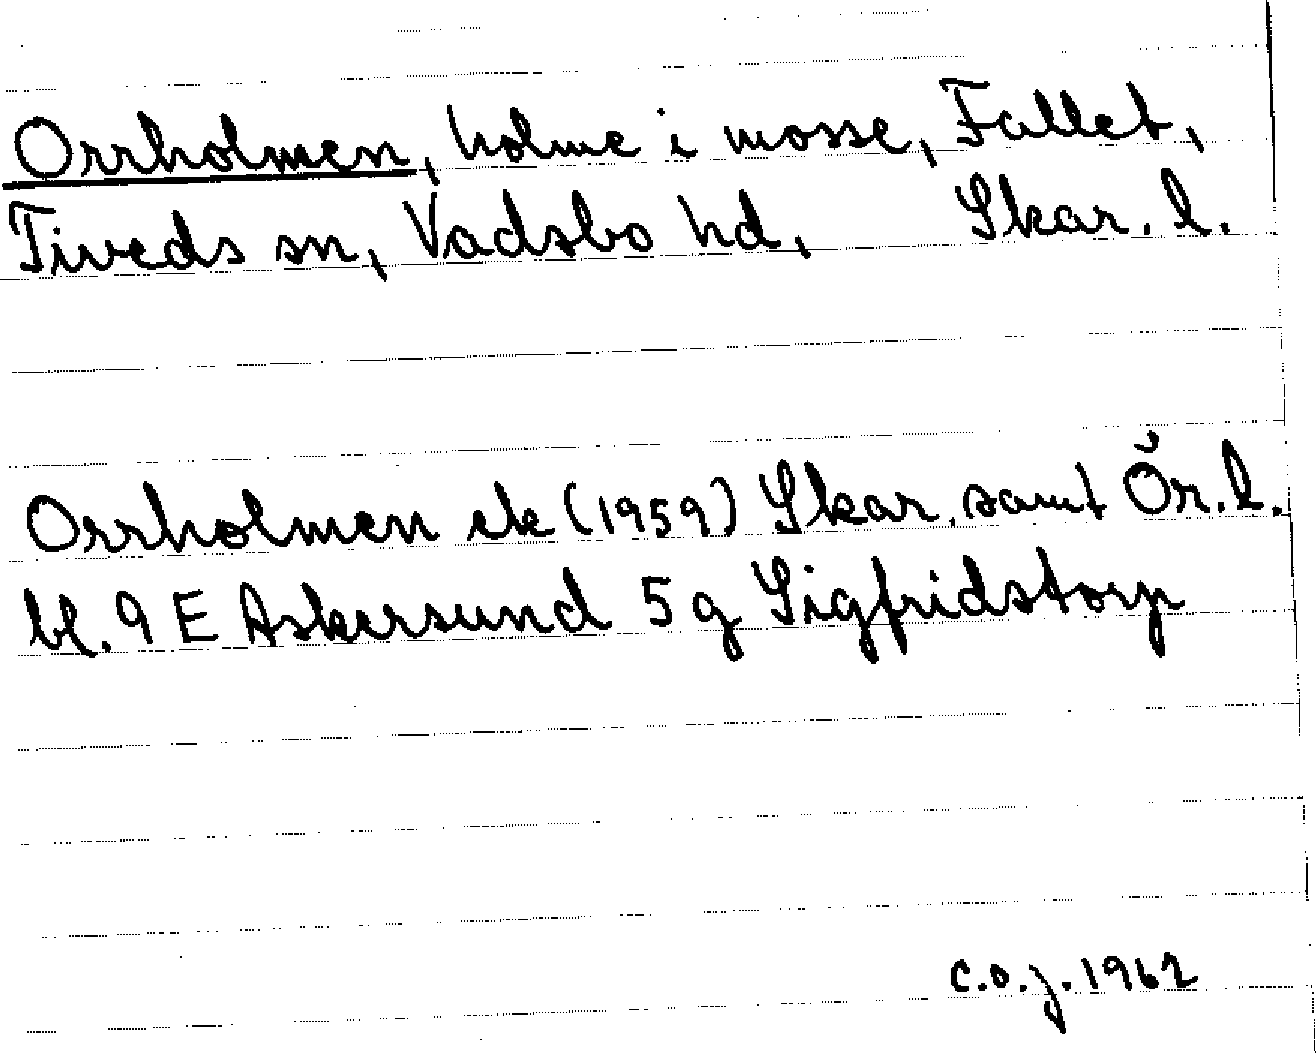 Orrholmen, holme i mosse, Fallet,
Tiveds sn, Vadsbo hd, Skar. l.
Orrholmen ek (1959) Skar. samt Ör. l.
bl. 9 E Askersund 5 g Sigfridstorp
C.O.J. 1962